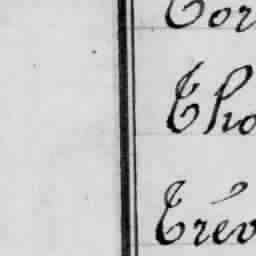 Tor
Tho
Trév